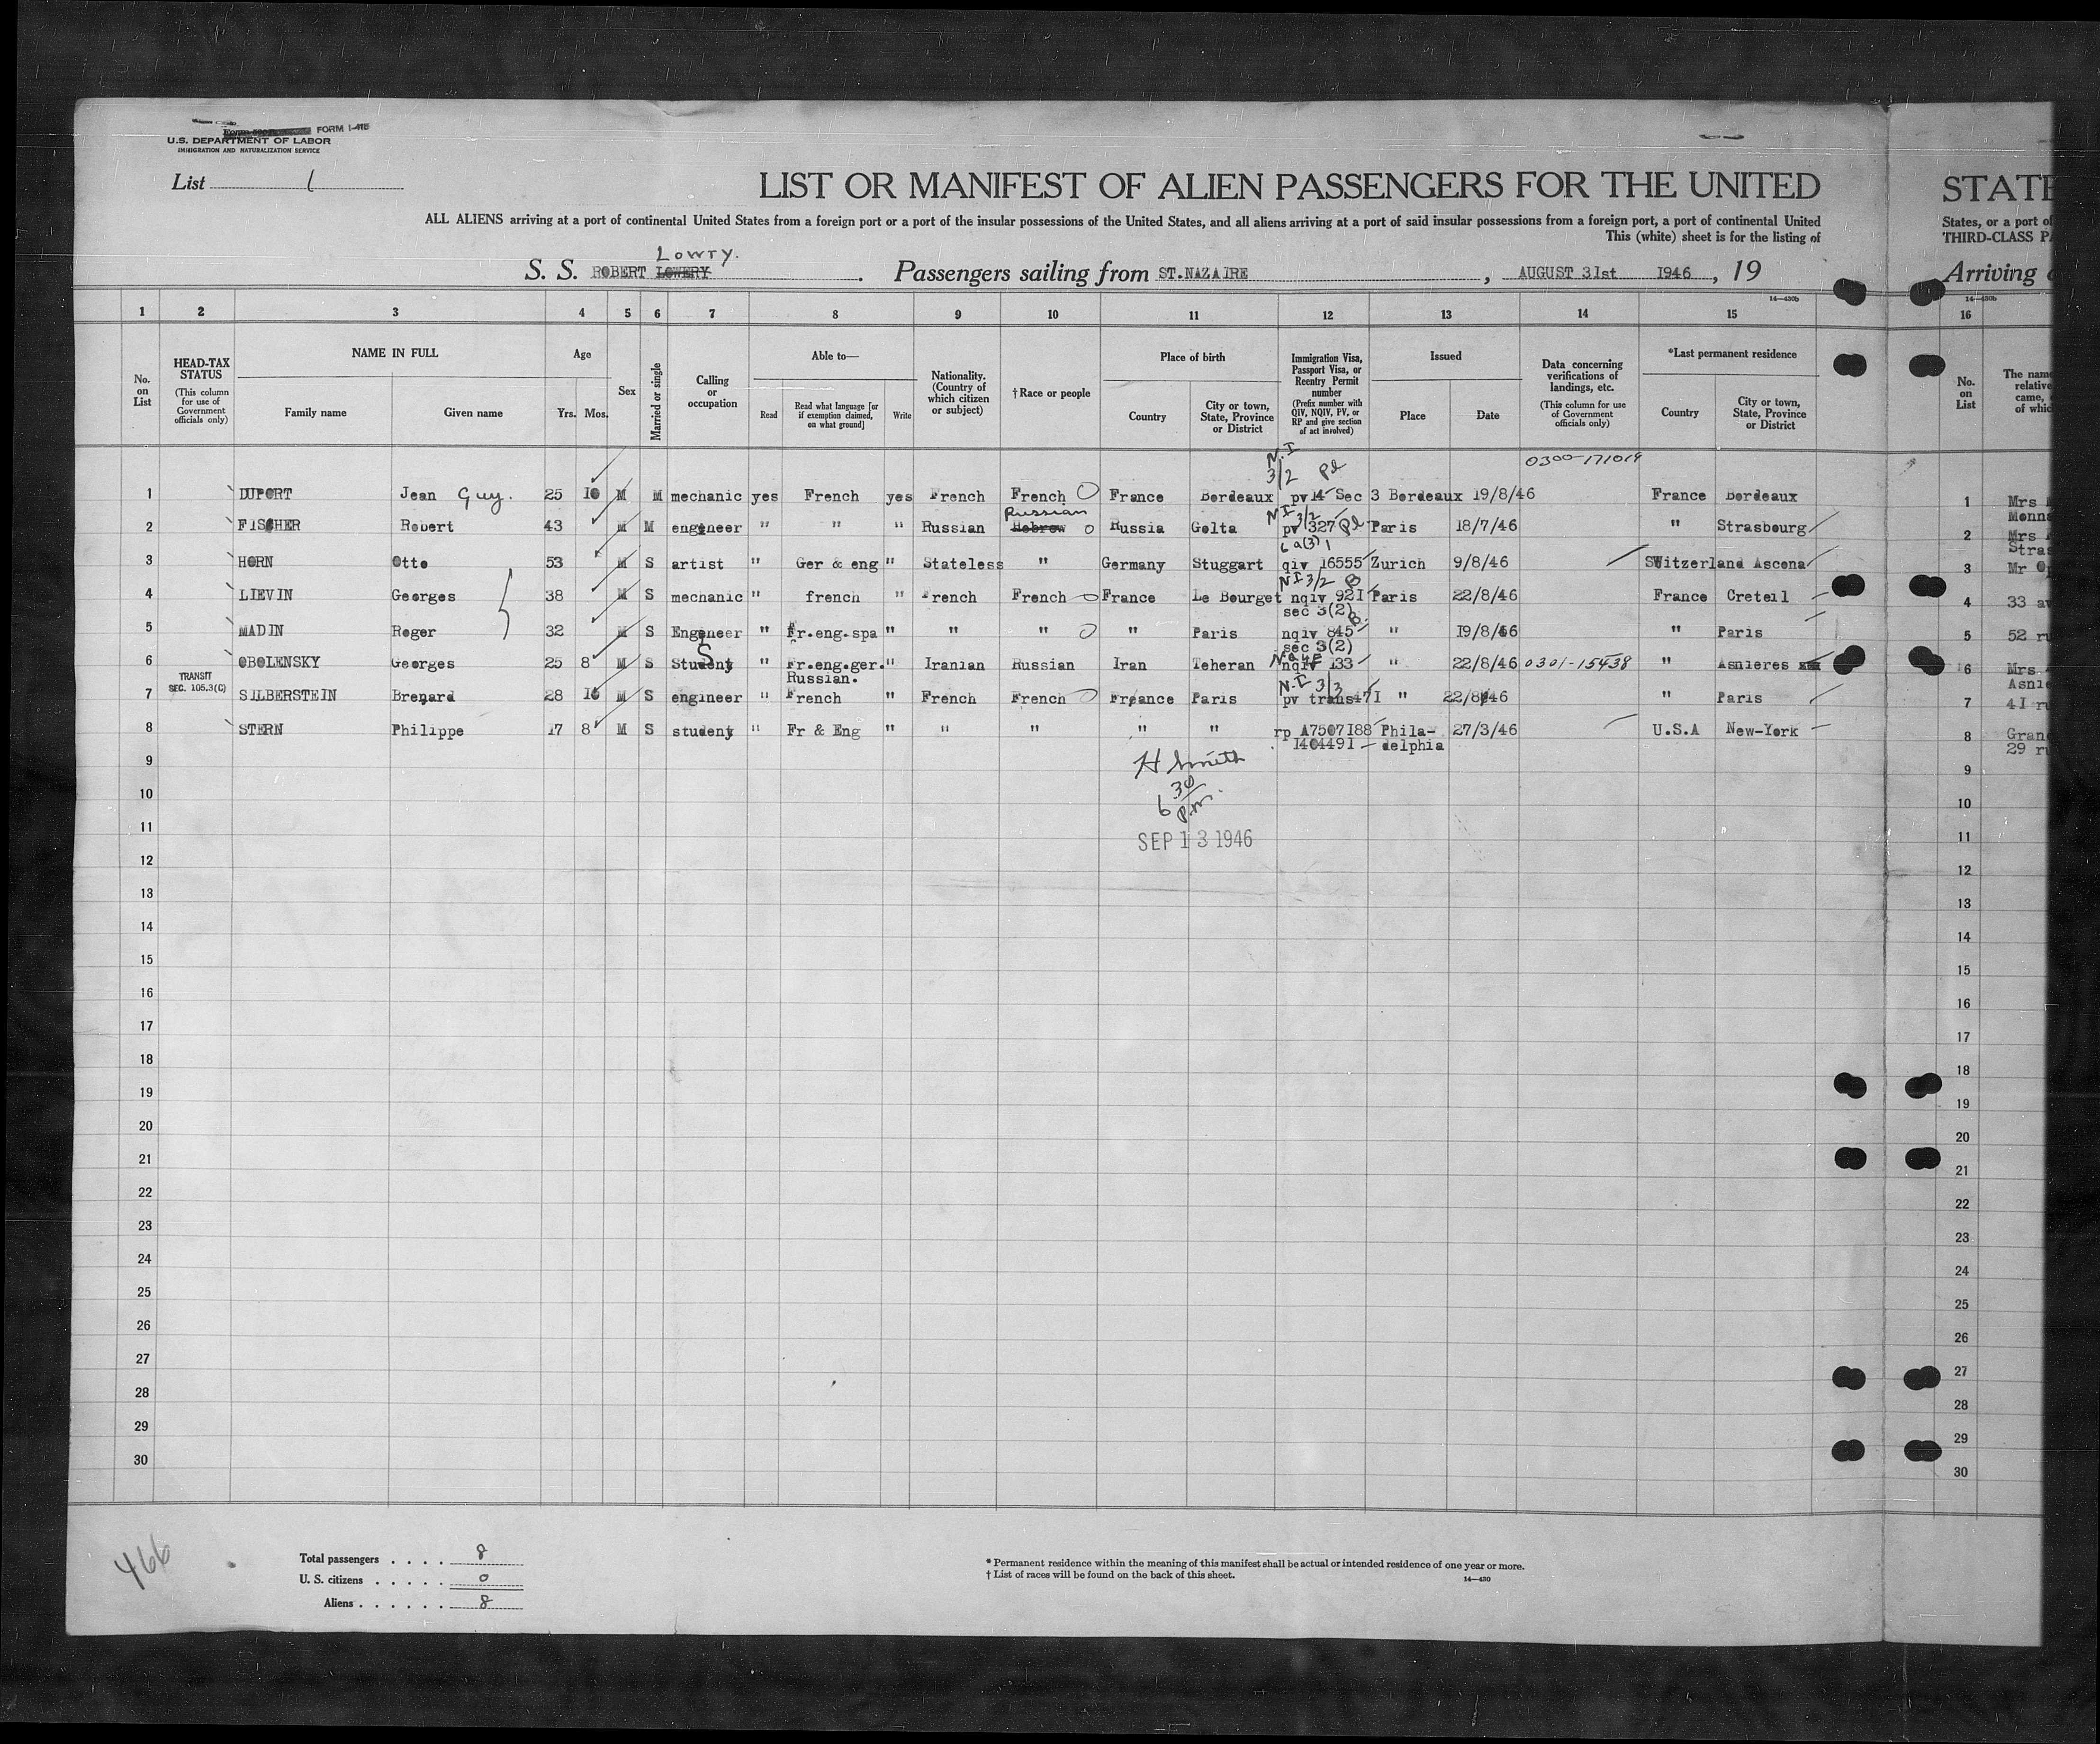 FORM I-415
U.S. DEPARTMENT OF LABOR
IMMIGRATION AND NATURALIZATION SERVICE
List 1
LIST OR MANIFEST OF ALIEN PASSENGERS FOR THE UNITED
STATE
ALL ALIENS arriving at a port of continental United States from a foreign port or a port of the insular possessions of the United States, and all aliens arriving at a port of said insular possessions from a foreign port, a port of continental United
States, or a port of
This (white) sheet is for the listing of
THIRD-CLASS PA
Lowry.
S. S. ROBERT LOWERY. Passengers sailing from ST.NAZAIRE, AUGUST 31st 1946, 19
Arriving
14—430b
14—430b
1 2 3 4 5 6 7 8 9 10 11 12 13 14 15 16
No. on List
HEAD-TAX STATUS
(This column for use of Government officials only)
NAME IN FULL
Family name Given name
Age
Yrs. Mos.
Sex
Married or single
Calling or occupation
Able to—
Read
Read what language [or if exemption claimed, on what ground]
Write
Nationality. (Country of which citizen or subject)
† Race or people
Place of birth
Country
City or town, State, Province or District
Immigration Visa, Passport Visa, or Reentry Permit number
(Prefix number with QIV, NQIV, PV, or RP and give section of act involved)
Issued
Place Date
Data concerning verifications of landings, etc.
(This column for use of Government officials only)
*Last permanent residence
Country
City or town, State, Province or District
No. on List
The name
relative
came,
of whic
0300-171019
N.I
3/2 Pl
1 DUPORT Jean Guy. 25 10 M M mechanic yes French yes French French France Bordeaux pv 14 Sec 3 Bordeaux 19/8/46 France Bordeaux 1 Mrs
Monna
Russian
N I 3/2
2 FISCHER Robert 43 M M engeneer " " " Russian Hebrew Russia Golta pv 327 Pl Paris 18/7/46 " Strasbourg 2 Mrs
Stras
6 a(3) 1
3 HORN Otto 53 M S artist " Ger & eng " Stateless " Germany Stuggart qiv 16555 Zurich 9/8/46 SWitzerland Ascona 3 Mr
N I 3/2 B
4 LIEVIN Georges 38 M S mechanic " french " French French France Le Bourget nqiv 921 Paris 22/8/46 France Creteil 4 33 av
sec 3(2)
5 MADIN Roger 32 M S Engeneer " Fr.eng.spa " " " " Paris nqiv 845 " 19/8/46 " Paris 5 52 ru
sec 3(2)
6 OBOLENSKY Georges 25 8 M S Student " Fr.eng.ger. " Iranian Russian Iran Teheran nqiv 133 " 22/8/46 0301-15438 " Asnieres 6 Mrs.
Russian.
Asnie
TRANSIT
SEC. 105.3(C)
N.I 3/3
7 SILBERSTEIN Brenard 28 10 M S engineer " French " French French Freance Paris pv trans171 " 22/8/46 " Paris 7 41 ru
8 STERN Philippe 17 8 M S student " Fr & Eng " " " " " rp A7507188 Phila- 27/3/46 U.S.A New-York 8 Gran
1404491 delphia
29 ru
H Smith
6 30
p.m.
SEP 13 1946
9 9
10 10
11 11
12 12
13 13
14 14
15 15
16 16
17 17
18 18
19 19
20 20
21 21
22 22
23 23
24 24
25 25
26 26
27 27
28 28
29 29
30 30
466
Total passengers . . . . 8
U. S. citizens . . . . . 0
Aliens . . . . . . 8
* Permanent residence within the meaning of this manifest shall be actual or intended residence of one year or more.
† List of races will be found on the back of this sheet.
14—430